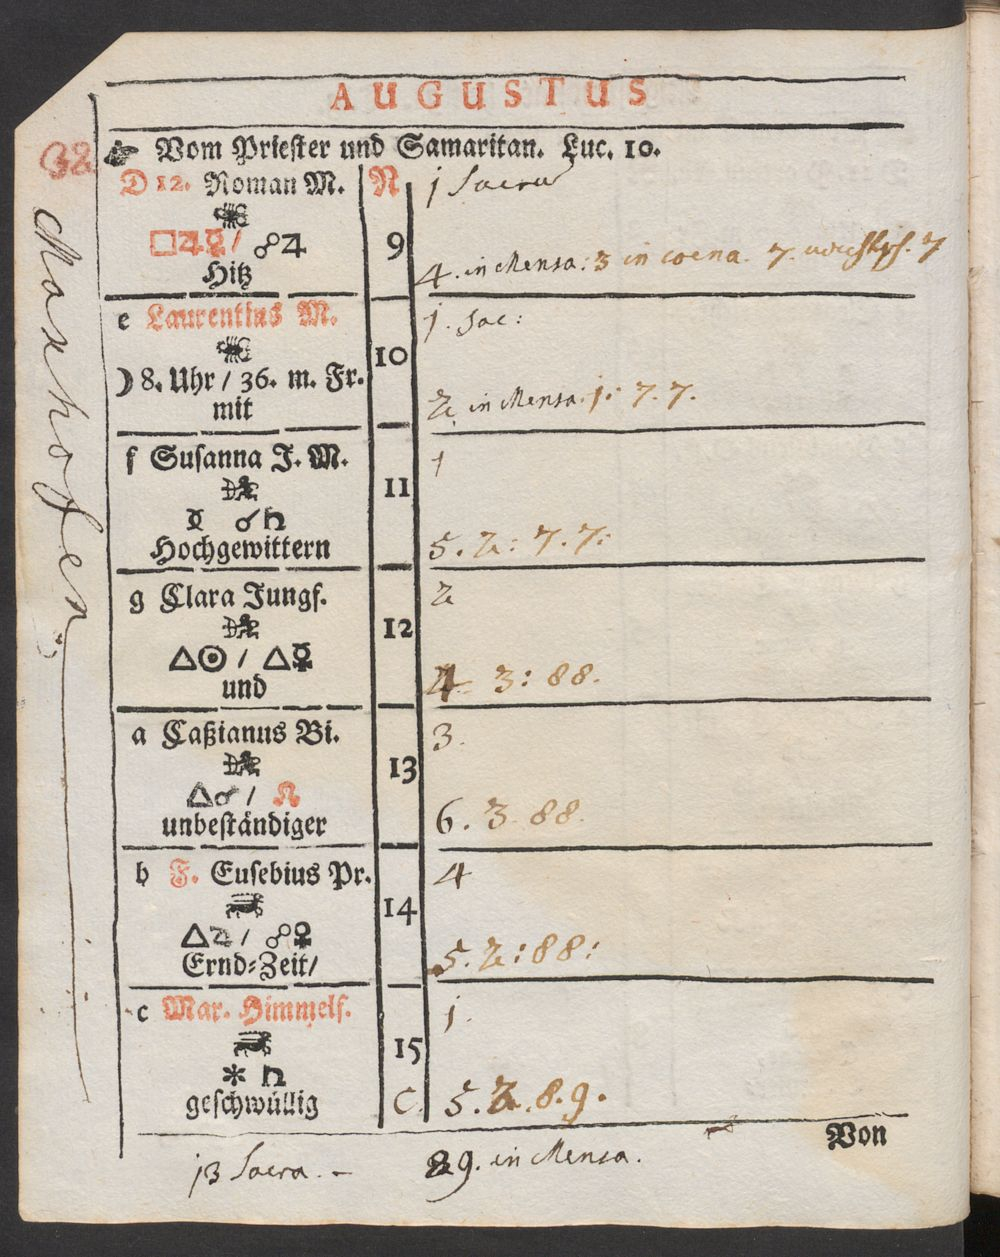 AUGUSTUS
32
Vom Priester und Samaritan. Luc. 10.
D 12. Roman M. N 1 Sacra
□♃☿/ ☍♃ 9
Hitz 4. in Mensa: 3 in coena. 7. 7
e Laurentius M. 1. Sac:
☽ 8. Uhr / 36. m. Fr. 10
mit 2 in Mensa. 1: 7. 7.
f Susanna J. M. 1
☿ ☌♄ 11
Hochgewittern 5. 2: 7. 7:
g Clara Jungf. 2
△☉ / △☿ 12
und 4 3: 88.
a Caßianus Bi. 3.
△♂ / ☊ 13
unbeständiger 6. 3 88.
b F. Eusebius Pr. 4
△♃ / ☍♀ 14
Ernd-Zeit/ 5. 2: 88:
c Mar. Himmelf. 1.
✱ ♄ 15
geschwüllig C. 5. 2. 8. 9.
Von
13 Sacra. – 29. in Mensa.
Maxhofen